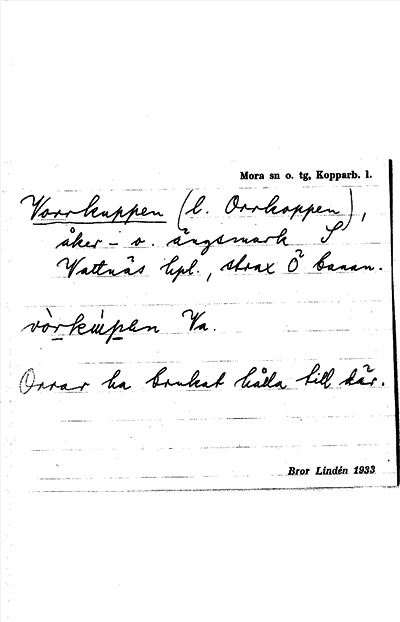 Mora sn o. tg, Kopparb. l.
Vorrkuppen (l. Orrkoppen),
åker- o. ängsmark S
Vattnäs hpl., strax Ö banan.
Va.
Orrar ha brukat hålla till där.
Bror Lindén 1933